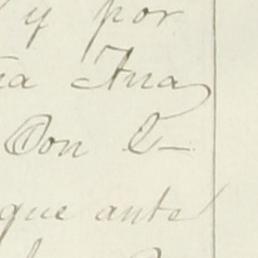 y por
Ana
Don E
que ante